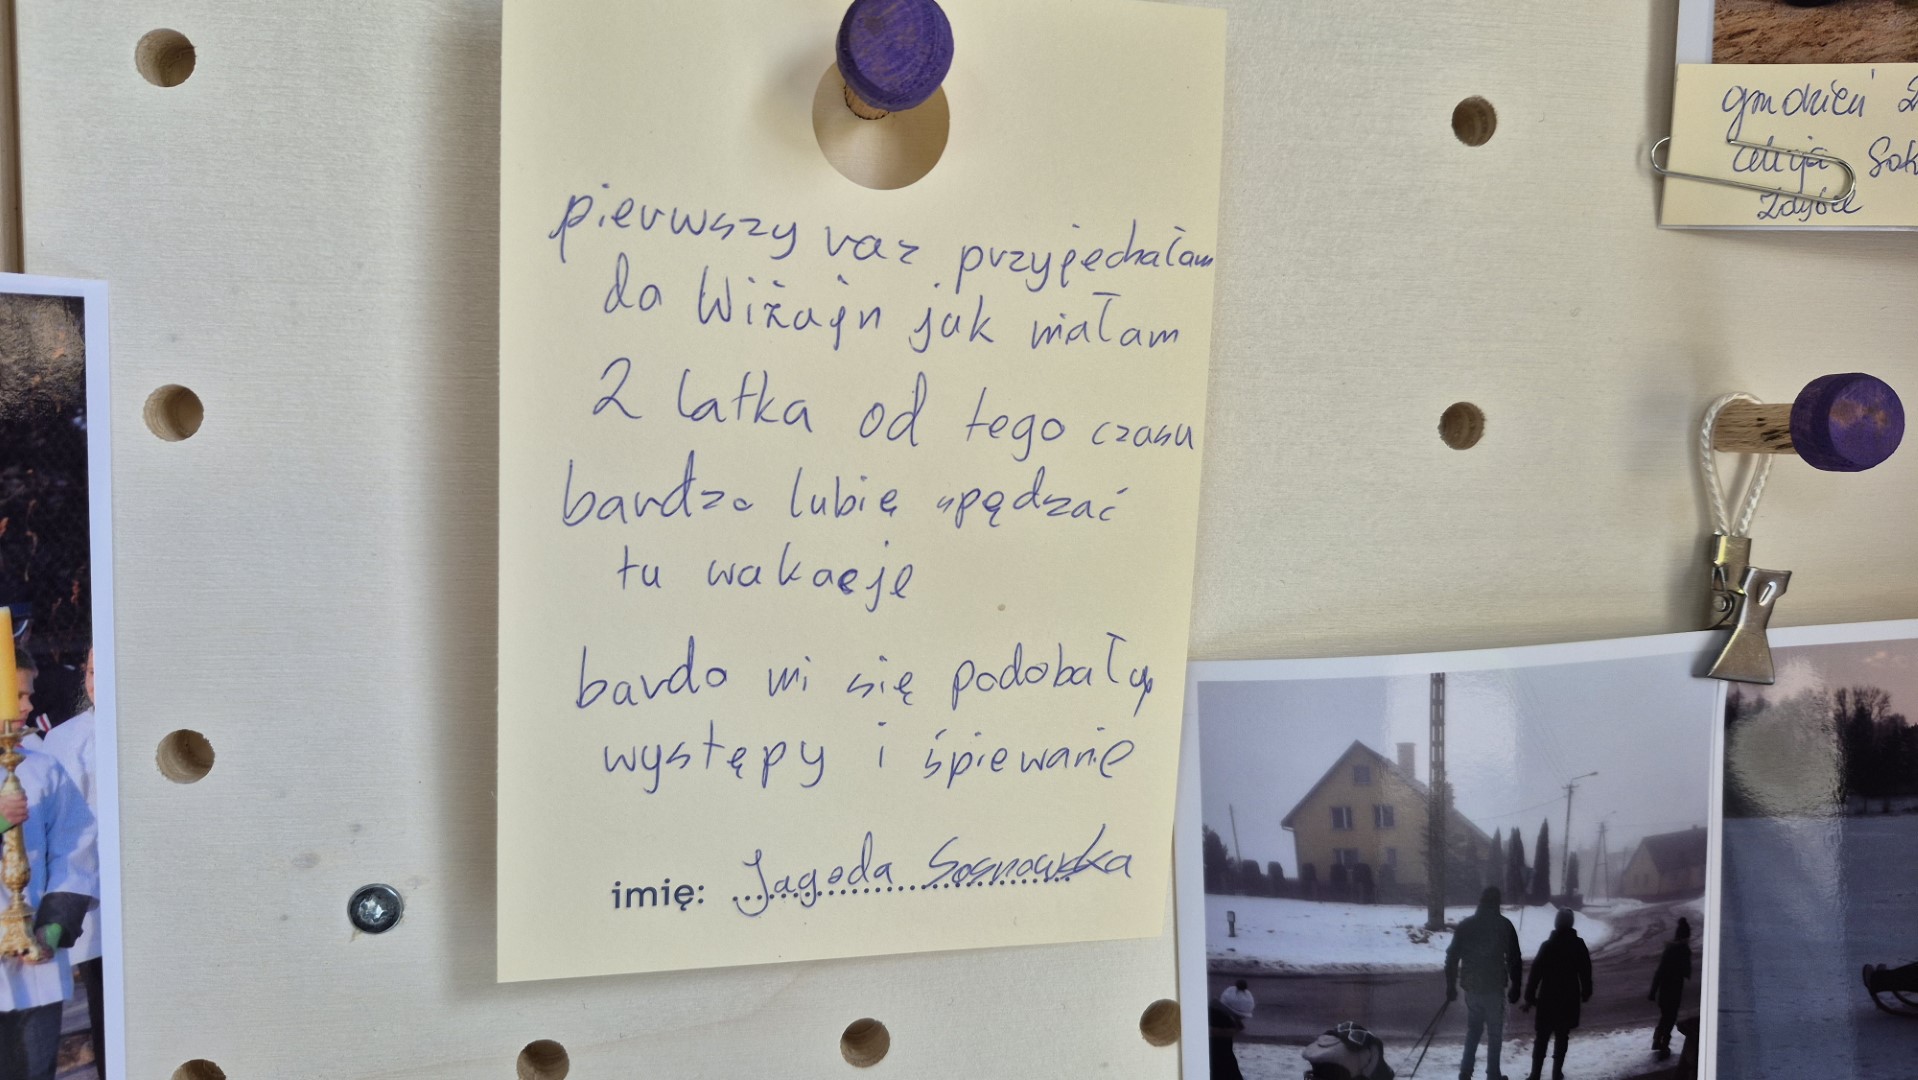 pierwszy raz przyjechałam
do Wiżajn jak miałam
2 latka od tego czasu
bardzo lubię spędzać
tu wakacje
bardo mi się podobały
występy i śpiewanie
imię: Jagoda Sosnowska
grudzień